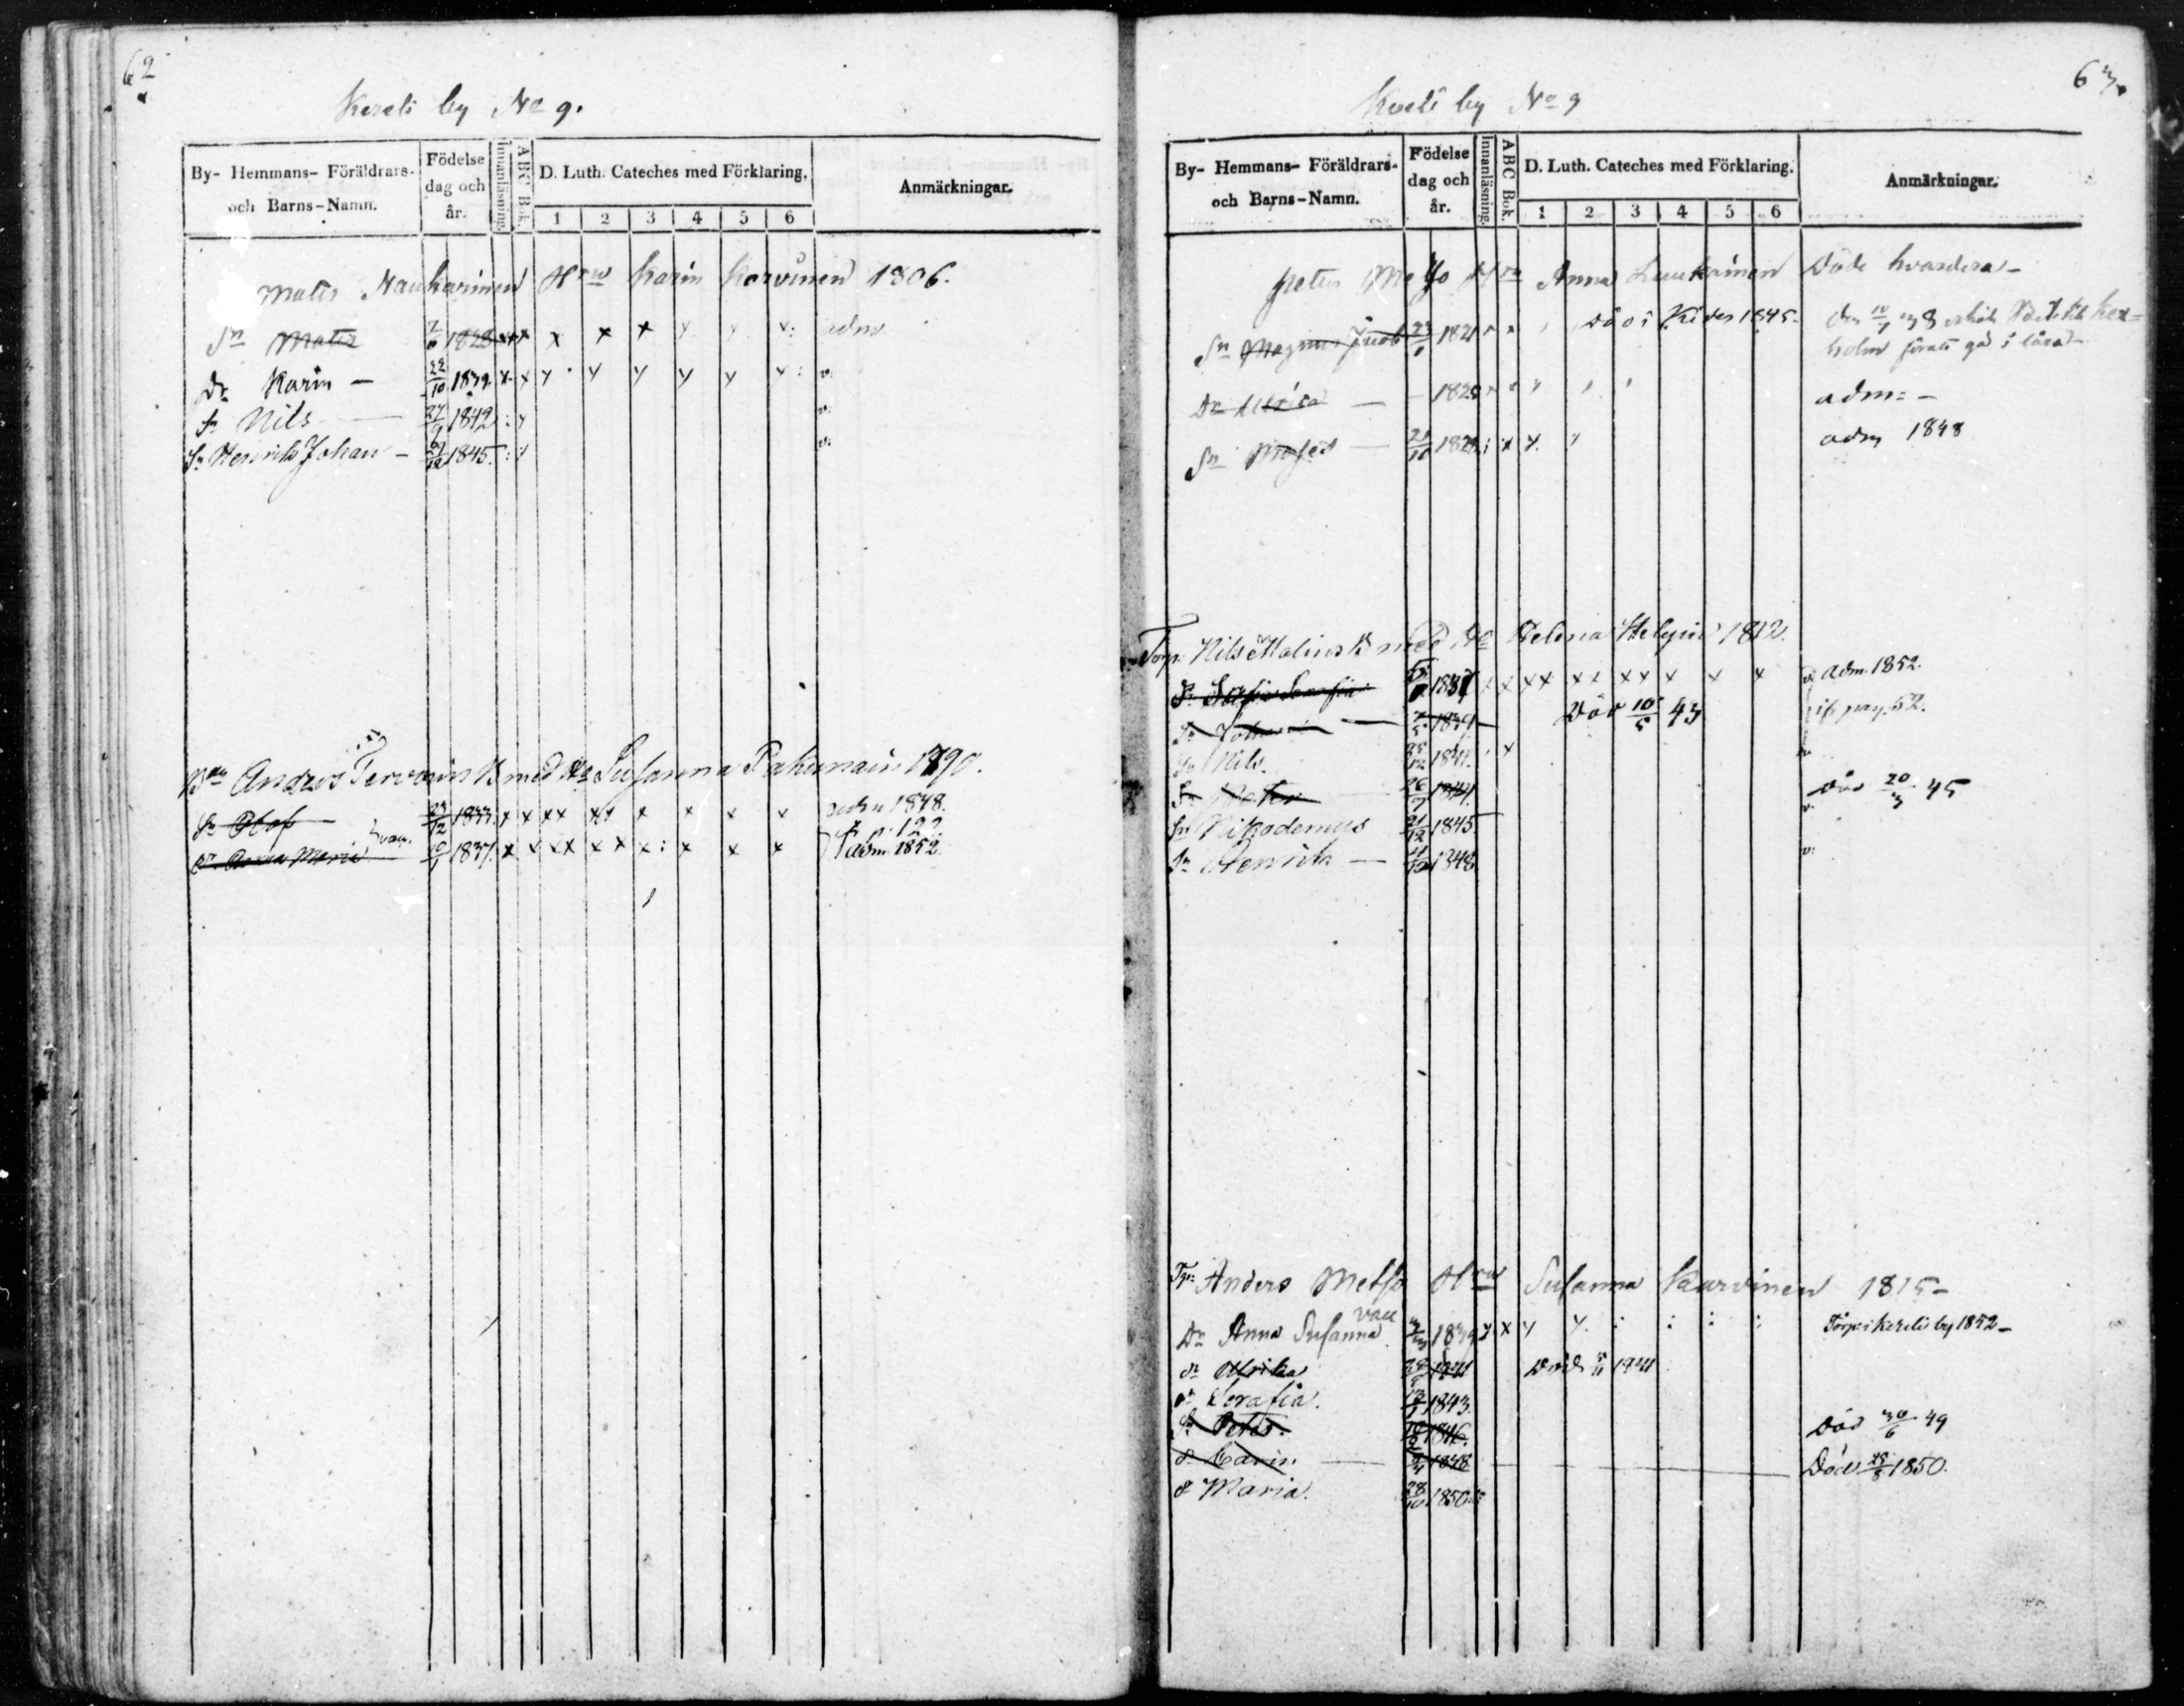 62
Kereli by No 9.
By- Hemmans- Föräldrars- och Barns-Namn.
Födelse dag och år.
Innanläsning.
ABC Bok.
D. Luth. Cateches med Förklaring.
1 2 3 4 5 6
Anmärkningar.
Matts Naukarinen Hru Karin Karvinen 1806.
Sn Matts 1828 x x x x x adm
Dr Karin — 22/10 1839 x x y y y y y y : v:
Sn Nils — 27/9 1842 : y v:
Sn Henrik Johan — 1845 : y v:
Anders Tervain med Susanna Pakunain 1790.
Sn Olof 24/12 1833 x x xx xx x x x x adm 1848.
p. 122
Dr Anna Maria vac. 1837. x x xx x x x : x x x adm. 1852
63.
Kereli by No 9
By- Hemmans- Föräldrars- och Barns-Namn.
Födelse dag och år.
Innanläsning.
ABC Bok.
D. Luth. Cateches med Förklaring.
1 2 3 4 5 6
Anmärkningar.
Peter Metso Hru Anna Laukainen Döde hvardera —
Sn Magnus Jacob 1821 Dö i Kides 1845. den 10/7 38 till Kex=
holm gå i
Dr Ulrica — 1825 adm: —
Sn Moses — 21/10 1829 : x y. adm 1848
Torp. Nils med Helena 1812.
1837 x x xx x x x x x x x adm. 1852.
Sn Johan — 1839 Död 10/5 43 pag. 52.
Sn Nils. 25/12 1841. x
Sn Peter 26/7 1844. Död 20/3 45
Sn Nikodemus 21/12 1845 v.
Sn Henrik — 1848 v:
Tp: Anders Metso Hru Susanna Kaarvinen 1815 —
Dr Anna Susanna vac 1839 y x y y. : : : : Torp i Kereli by 1852 —
Dr Ulrika 1841 Död 1841
Dr Serafia. 1843.
Sn Peter. 1846. Död 30/6 49
Dr Carin. — 1848 Död 25/8 1850.
Dr Maria. 28/10 1850